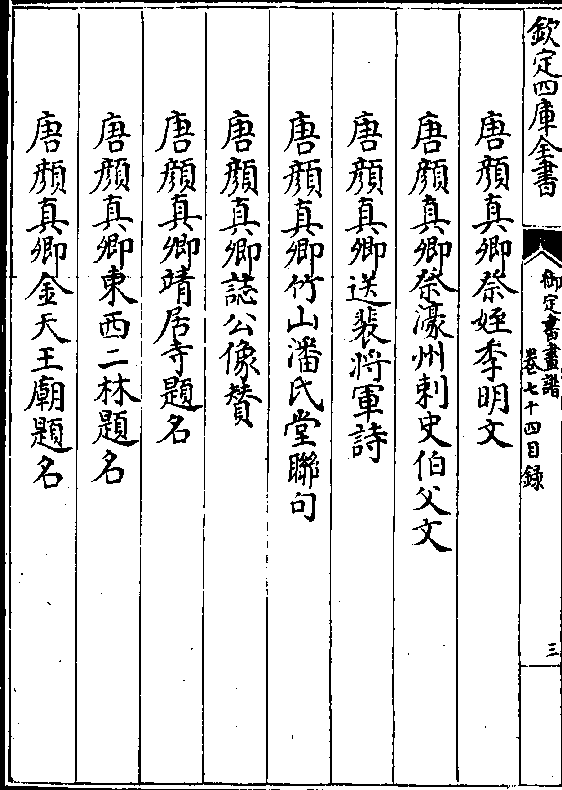 欽定四庫全書
御定書畫譜
卷七十四目録
三
唐顔真卿祭姪季明文
唐顔真卿祭濠州刺史伯父文
唐顔真卿送裴將軍詩
唐顔真卿竹山潘氏堂聯句
唐顔真卿誌公像贊
唐顔真卿靖居寺題名
唐顔真卿東西二林題名
唐顔真卿金天王廟題名